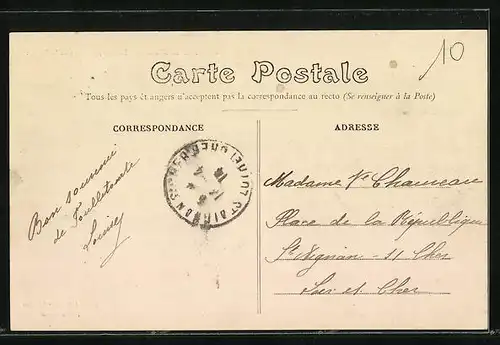 10
Carte Postale
Tous les pays étrangers n'acceptent pas la correspondance au recto (Se renseigner à la Poste)
CORRESPONDANCE
ADRESSE
Bon souvenir
de
Madame Vᵉ Chauveau
Place de la République
St Aignan - s/ Cher
Loir et Cher